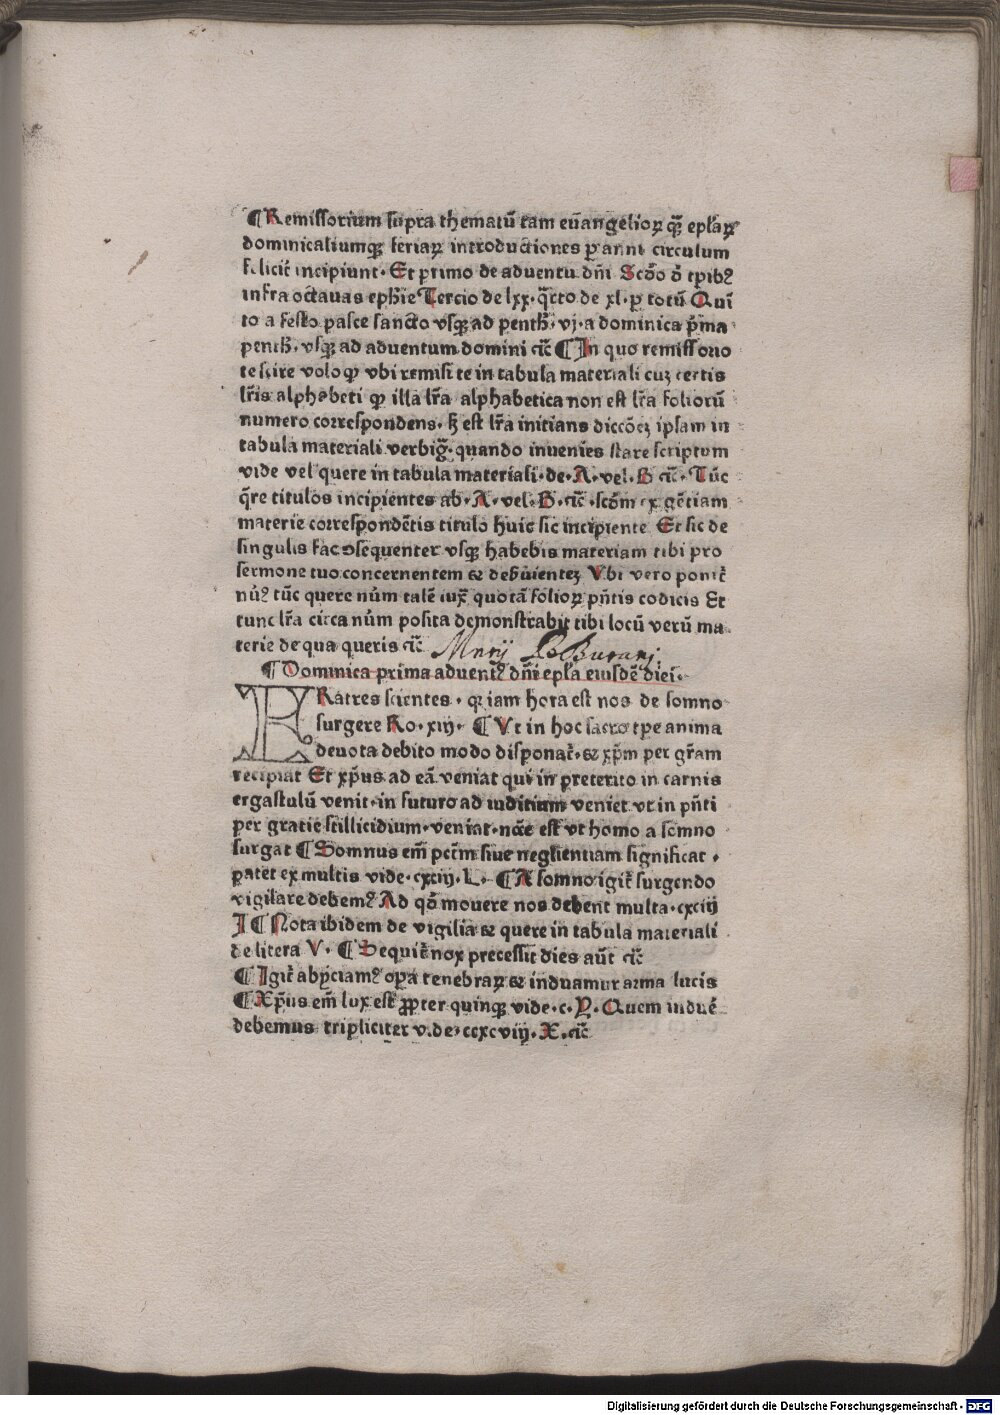 ¶Remissorium supra thematū tam eūangelioꝝ qꝫ̄ ep̄laꝝ
dominicaliumqꝫ feriaꝝ introductiones ꝑ anni circulum
felicit᷑ incipiunt· Et primo de aduentu dn̄i Scd̄o ō tp̄ibꝰ
infra octauas ephīe Tercio de lxx· q̄rto de xl· ꝑ totū Qui
to a festo pasce sancto vsqꝫ ad penth̄· vj· a dominica p̄ma
penth̄· vsqꝫ ad aduentum domini ⁊c̄ ¶In quo remissorio
te scire volo ꝙ vbi remisi te in tabula materiali cuꝫ certis
lr̄is alphabeti ꝙ illa lr̄a alphabetica non est lr̄a folioꝝū
numero correspondens· h̄ est lr̄a initians diccōeꝫ ipsam in
tabula materiali verbiḡ· quando inuenies stare scriptum
vide vel quere in tabula materiali· de· A· vel· B ⁊c̄· Tūc
q̄re titulos incipientes ab· A· vel· B· ⁊c̄· scd̄m exigētiam
materie correspondētis titulo huic sic incipiente Et sic de
singulis fac ꝯsequenter vsqꝫ habebis materiam tibi pro
sermone tuo concernentem ⁊ deseruienteꝫ Vbi vero ponit᷑
nūꝰ tūc quere nūm talē iuxͣ quotā folioꝝ pn̄tis codicis Et
tunc lr̄a circa nūm posita demonstrabit tibi locū verū ma
terie de qua queris ⁊c̄
¶Dominica prima aduentꝰ dn̄i ep̄la eiusdē diei·
FRatres scientes· quiam hora est nos de somno
surgere Ro· xiij· ¶Vt in hoc sacro tp̄e anima
deuota debito modo disponat᷑· ⁊ xp̄m per gr̄am
recipiat Et xp̄us ad eā veniat qui in preterito in carnis
ergastulū venit· in futuro ad iuditium veniet vt in pn̄ti
per gratie stillicidium· veniat· nc̄e est vt homo a somno
surgat ¶Somnus em̄ pctm̄ siue neglientiam significat·
patet ex multis vide· cxciij· L· ¶A somno igit᷑ surgendo
vigilare debemꝰ Ad qd̄ mouere nos debent multa· cxciij
I ¶Nota ibidem de vigilia ⁊ quere in tabula materiali
de litera V· ¶Sequit᷑ nox precessit dies aūt ⁊c̄
¶Igit᷑ abyciamꝰ oꝑa tenebraꝝ ⁊ induamur arma lucis
¶Xp̄us em̄ lux est ꝓpter quinqꝫ vide· c· Y· Quem induē
debemus tripliciter v. de· ccxcviij· X· ⁊c̄
Digitalisierung gefördert durch die Deutsche Forschungsgemeinschaft - DFG